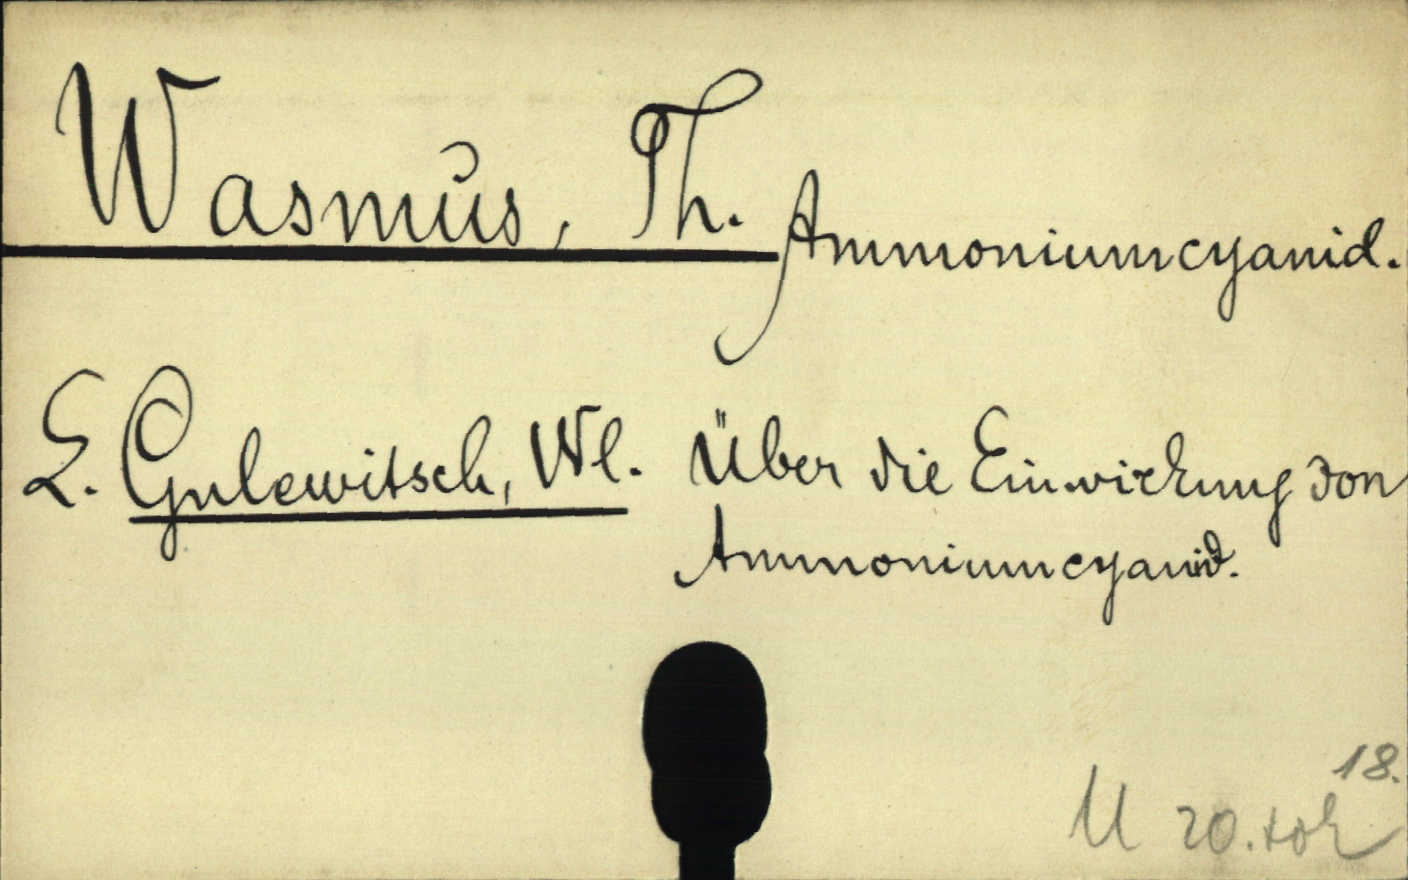 Wasmus, Th. Ammoniumcyanid.
L. Gulewitsch, Wl. Über die Einwirkung von
Ammoniumcyanid.
18.
U 20. tok